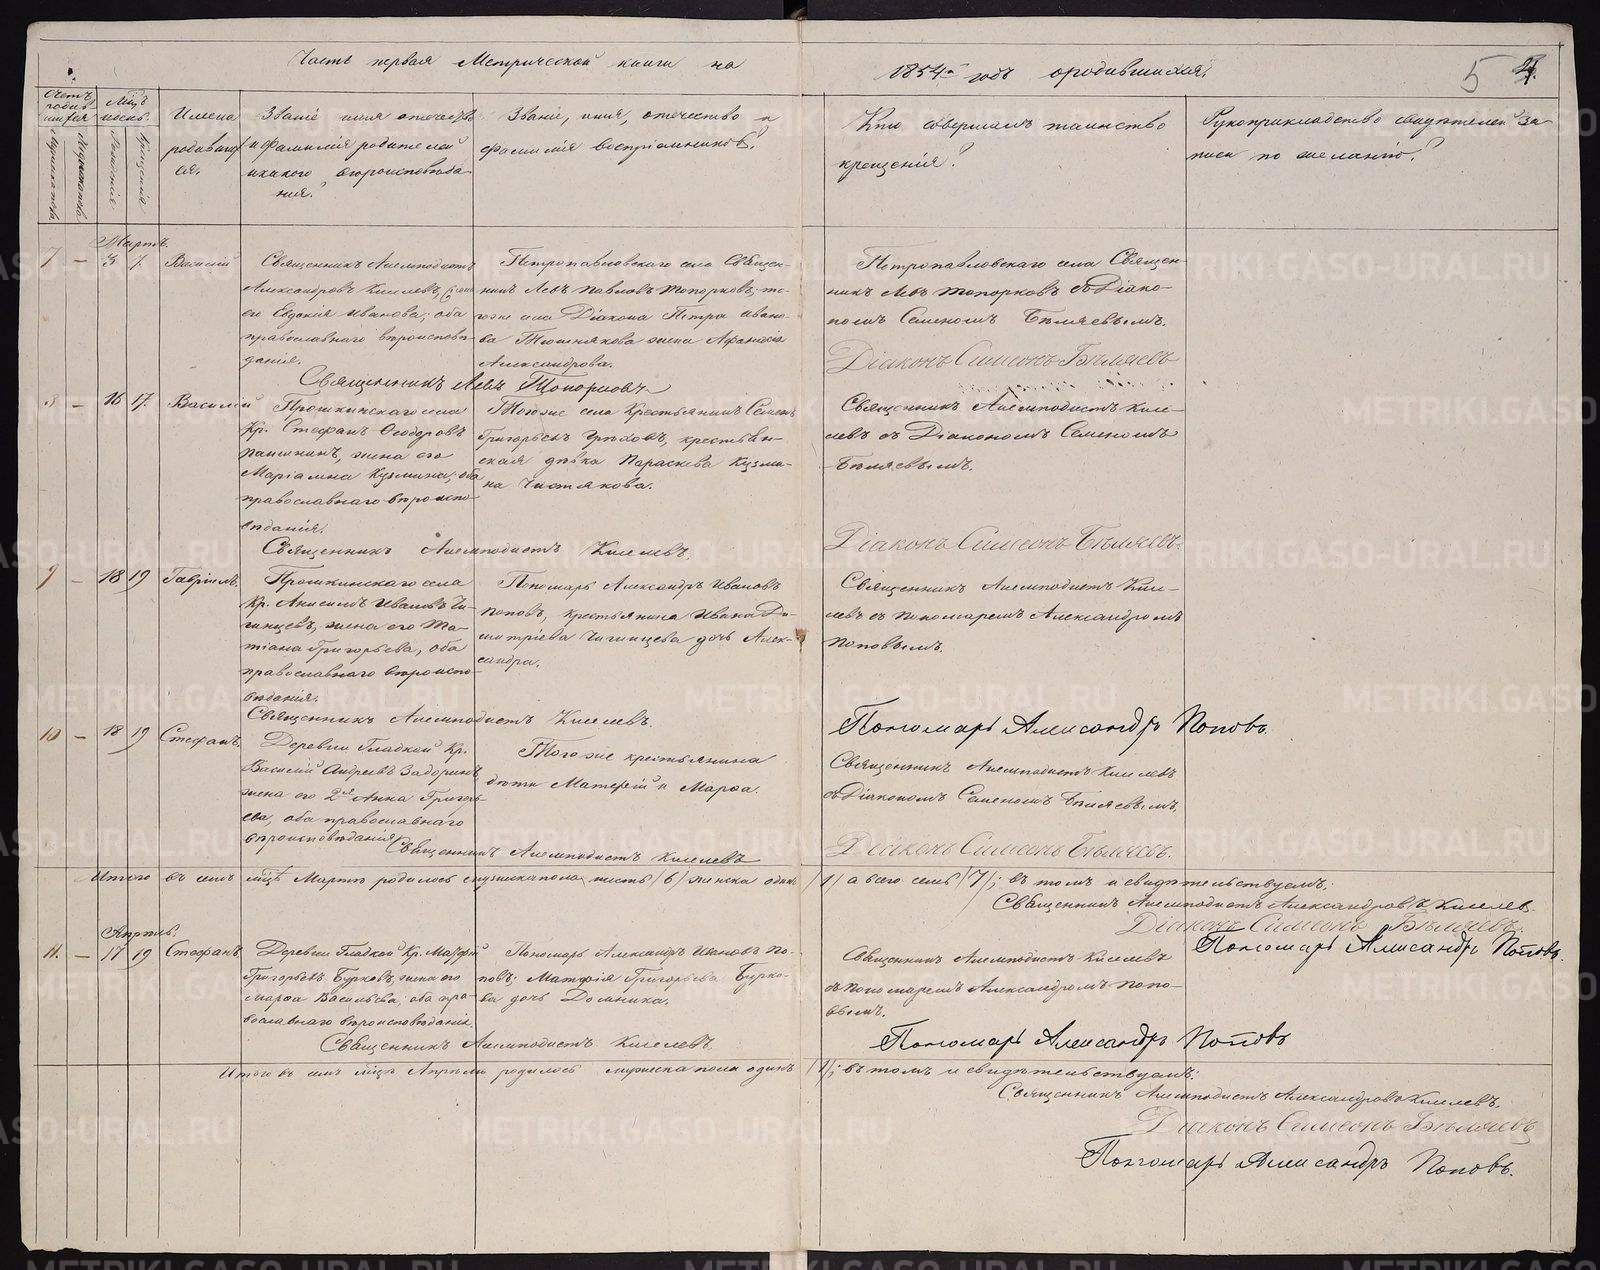 Часть первая Метрической книги на
1854й годъ о родившихся.
5
4.
Счетъ родив-
шихся
Мужеска пола
Женска пола
Мѣсяцъ
Рожденія
Крещенія
Имена
родивших
ся.
Званіе имя отечество
и фамилія родителей
и какого вѣроисповѣда-
нія?
Званіе, имя, отечество и
фамилія воспріемниковъ?
Кто совершалъ таинство
крещенія?
Рукоприкладство свидѣтелей за-
писи по желанію?
Мартъ.
7 — 3 7. Василій
Священникъ Анемподистъ
Александровъ Киселевъ, жена
его Евдокія Иванова; оба
православнаго вѣроисповѣ-
данія.
Петропавловскаго села Священ-
никъ Левъ Павловъ Топорковъ; то-
гоже села Діакона Петра Ивано-
ва жена Афанасія
Александрова.
Петропавловскаго села Священ-
никъ Левъ Топорковъ съ Діако-
номъ Семеномъ Бѣляевымъ.
Діаконъ Симеонъ Бѣляевъ
Священникъ Левъ Топорковъ
8 — 16 17. Василій
Прошкинскаго села
Кр. Стефанъ Ѳеодоровъ
жена его
Маріамна Кузмина, оба
православнаго вѣроиспо-
вѣданія.
Тогоже села Крестьянинъ Семенъ
Григорьевъ крестьян-
ская дѣвка Параскева Кузми-
на Чистякова.
Священникъ Анемподистъ Кисе-
левъ съ Діакономъ Семеномъ
Бѣляевымъ.
Діаконъ Симеонъ Бѣляевъ.
Священникъ Анемподистъ Киселевъ.
9 — 18 19 Гавріилъ.
Прошкинскаго села
Кр. Анисимъ Ивановъ Чи-
гинцевъ, жена его Та-
тіана Григорьева, оба
православнаго вѣроиспо-
вѣданія.
Пономарь Александръ Ивановъ
Поповъ, крестьянина Ивана Ди-
митріева Чигинцева дочь Алек-
сандра.
Священникъ Анемподистъ Кисе-
левъ съ пономаремъ Александромъ
Поповымъ.
Священникъ Анемподистъ Киселевъ.
Пономарь Александръ Поповъ.
10 — 18 19 Стефанъ.
Деревни Гладкой Кр.
Василій Андреевъ Задоринъ
жена его 2я Анна Григорь-
ева, оба православнаго
вѣроисповѣданія
Тогоже крестьянина
дѣти Матѳей и Марѳа.
Священникъ Анемподистъ Киселевъ
съ Діакономъ Семеномъ Бѣляевымъ.
Діаконъ Симеонъ Бѣляевъ.
Священникъ Анемподистъ Киселевъ
Итого въ семъ мѣсяцѣ Мартѣ родилось мужеска пола шесть /6/ женска одинъ
/1/ а всего семь /7/; въ томъ и свидѣтельствуемъ:
Священникъ Анемподистъ Александровъ Киселевъ.
Діаконъ Симеонъ Бѣляевъ.
Пономарь Александръ Поповъ.
Апрѣль.
11. — 17 19 Стефанъ
Деревни Гладкой Кр. Матѳей
Григорьевъ Бурковъ, жена его
Марѳа Васильева, оба пра-
вославнаго вѣроисповѣданія.
Пономарь Александръ Ивановъ По-
повъ; Матѳія Григорьева Бурко-
ва дочь Домника.
Священникъ Анемподистъ Киселевъ
съ пономаремъ Александромъ Попо-
вымъ.
Священникъ Анемподистъ Киселевъ.
Пономарь Александръ Поповъ
Итого въ семъ мѣсяцѣ Апрѣлѣ родилось мужеска пола одинъ
/1/; въ томъ и свидѣтельствуемъ:
Священникъ Анемподистъ Александровъ Киселевъ.
Діаконъ Симеонъ Бѣляевъ
Пономарь Александръ Поповъ.
METRIKI.GASO-URAL.RU